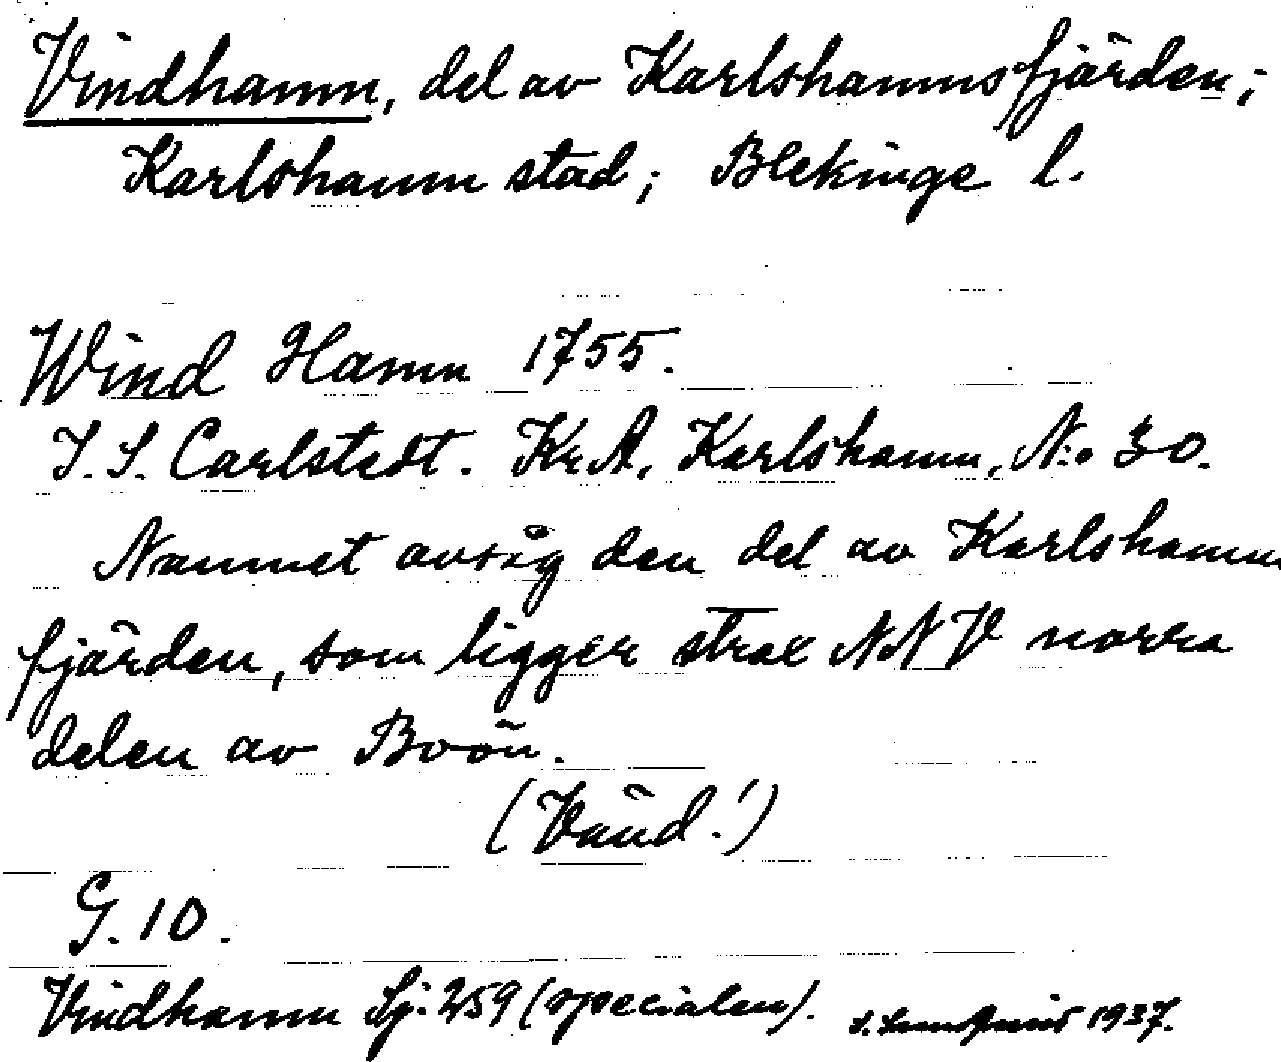 Vindhamn, del av Karlshamnsfjärden;
Karlshamn stad; Blekinge l.
Wind Hamn 1755.
J. S. Carlstedt. Kr.A. Karlshamn, N:o 30.
Namnet avsåg den del av Karlshamns
fjärden, som ligger strax NNV norra
delen av Boön.
(Vänd!)
G. 10.
Vindhamn Sj. 259 (specialen). 1937.